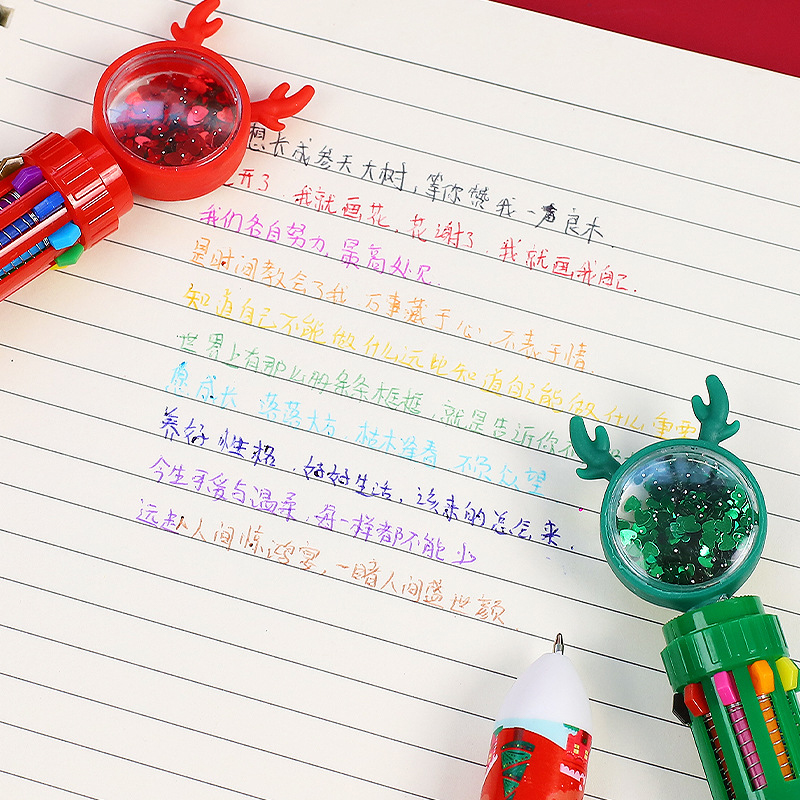 想长成参天大树，等你赞我一声良木.
开了，我就画花，花谢了，我就画我自己.
我们各自努力，最高处见.
是时间教会了我 万事藏于心，不表于情.
知道自己不能做什么远比知道自己能做什么重要
世界上有那么多条条框框，就是告诉你
愿成长 落落大方，枯木逢春 不负众望
养好性格，好好生活，该来的总会来.
今生可爱与温柔，每一样都不能少
远赴人间惊鸿宴，一睹人间盛世颜